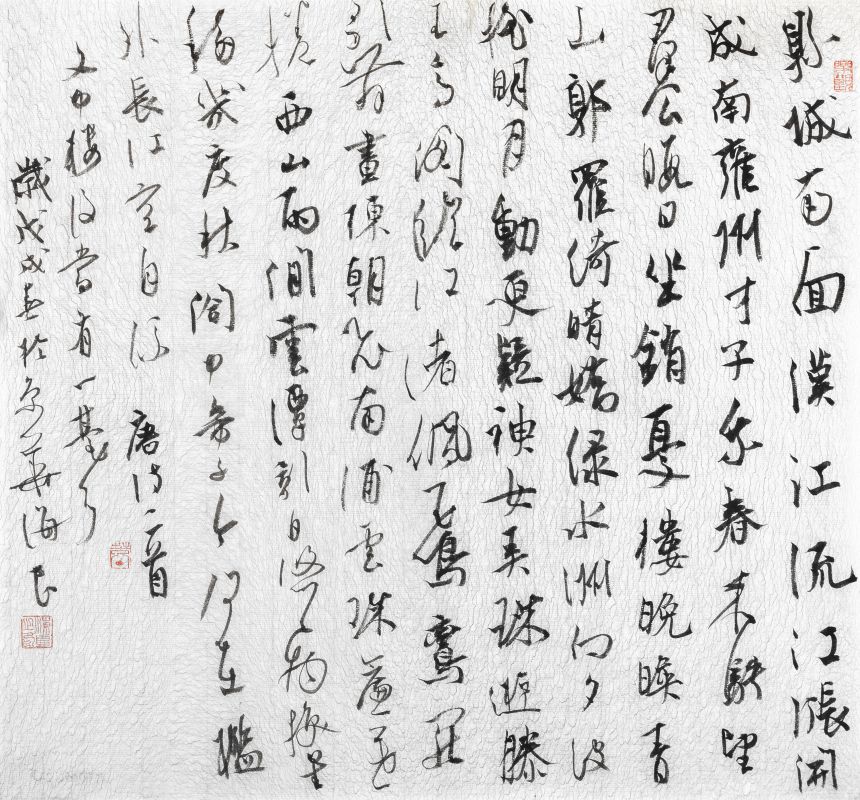 縣城南面漢江流江漲開
成南雍州才子乘春來騁望
羣公暇日坐銷憂樓晚暎青
山郭羅綺晴嬌綠水洲向夕波
搖明月動更疑神女弄珠遊滕
王高閣臨江渚佩玉鳴鸞罷
歌舞畫棟朝飛南浦雲珠簾暮
捲西山雨閒雲潭影日悠悠物換星
移幾度秋閣中帝子今何在檻
外長江空自流 唐詩二首
文中樓後當有一臺字
歲戊戌春於京華海